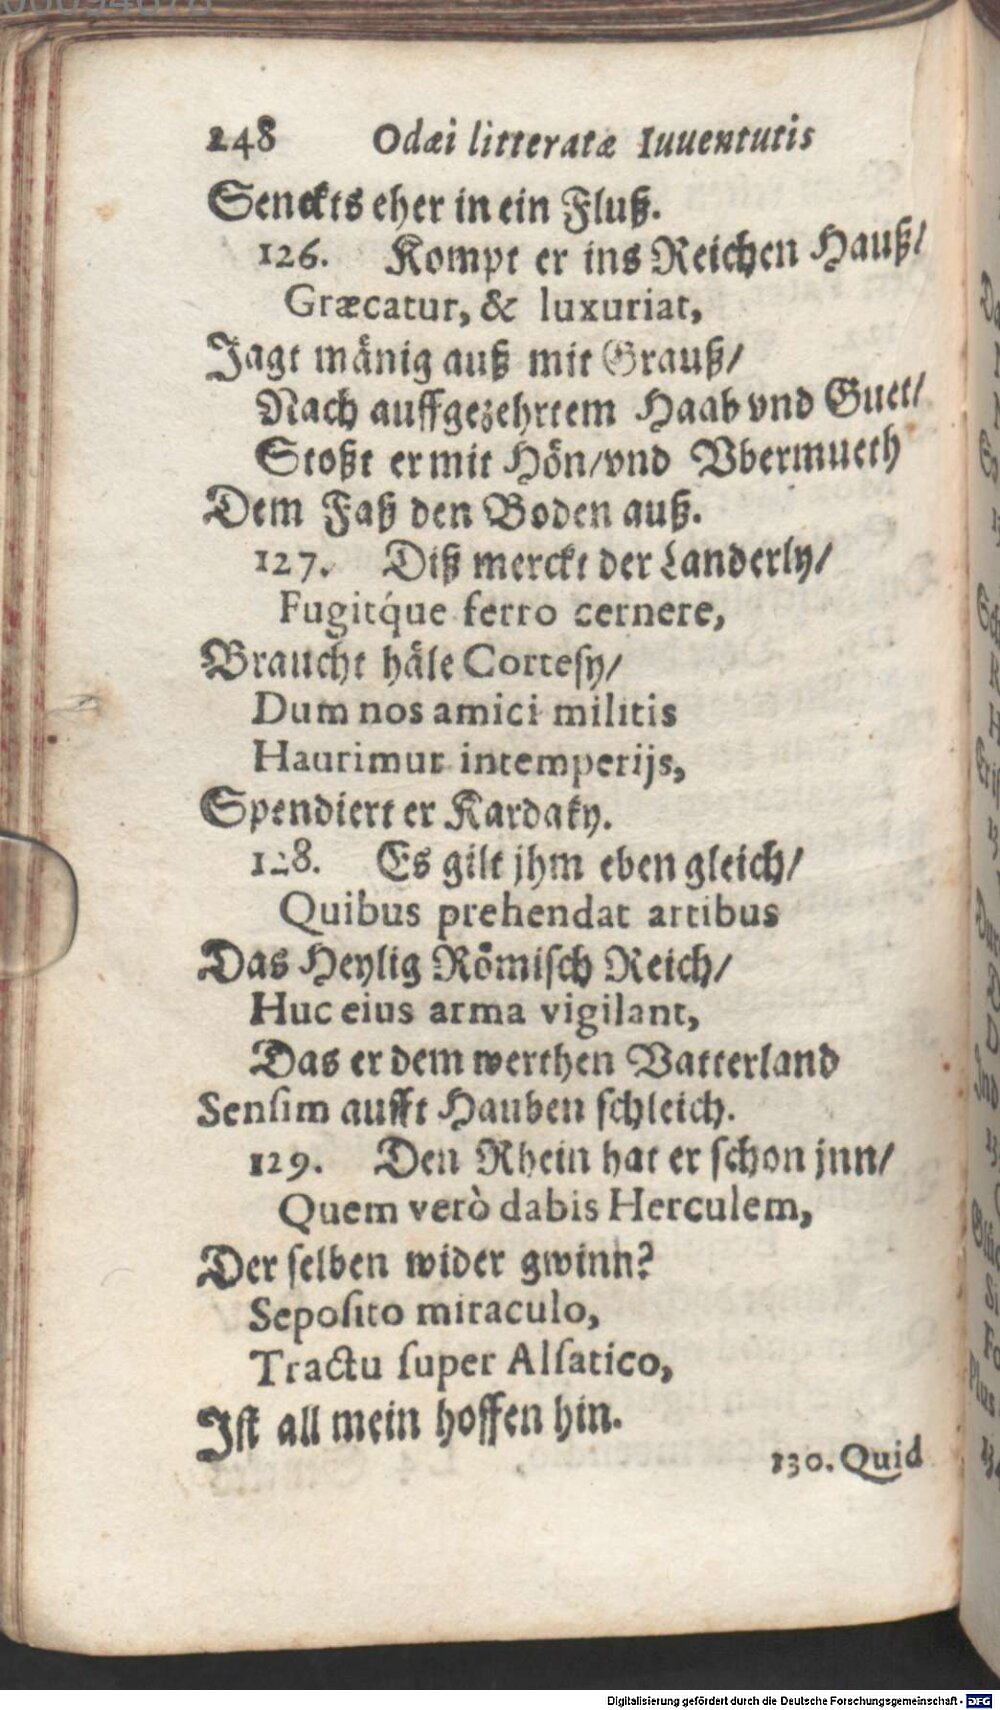 248 Odæi litteratæ Iuuentutis
Senckts eher in ein Fluß.
126. Kompt er ins Reichen Hauß/
Græcatur, & luxuriat,
Jagt mänig auß mit Grauß/
Nach auffgezehrtem Haab vnd Guet/
Stoßt er mit Hön/vnd Vbermueth
Dem Faß den Boden auß.
127. Diß merckt der Landerly/
Fugitq́ue ferro cernere,
Braucht häle Cortesy/
Dum nos amici militis
Haurimur intemperijs,
Spendiert er Kardaky.
128. Es gilt jhm eben gleich/
Quibus prehendat artibus
Das Heylig Römisch Reich/
Huc eius arma vigilant,
Das er dem werthen Vatterland
Sensim aufft Hauben schleich.
129. Den Rhein hat er schon jnn/
Quem verò dabis Herculem,
Der selben wider gwinn?
Seposito miraculo,
Tractu super Alsatico,
Ist all mein hoffen hin.
130. Quid
Digitalisierung gefördert durch die Deutsche Forschungsgemeinschaft - DFG